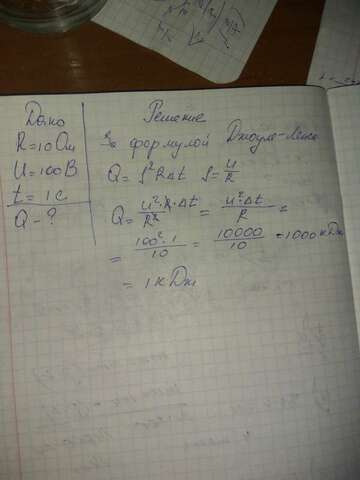 Дано
R=10 Ом
U=100В
t=1с
Q-?
Решение
За формулой Джоуля-Ленца
Q=I²RΔt I=U/R
Q=U²·R·Δt/R²=U²·Δt/R=
=100²·1/10=10000/10=1000кДж
=1кДж